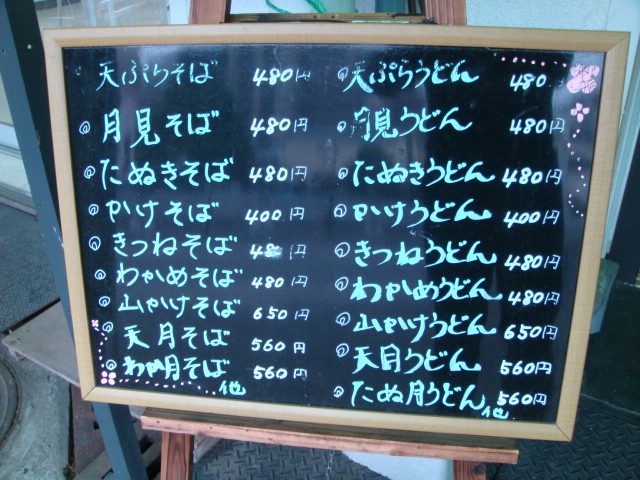 天ぷらそば 480円
月見そば 480円
たぬきそば 480円
かけそば 400円
きつねそば 480円
わかめそば 480円
山かけそば 650円
天月そば 560円
わか月そば 560円
他
天ぷらうどん 480
月見うどん 480円
たぬきうどん 480円
かけうどん 400円
きつねうどん 480円
わかめうどん 480円
山かけうどん 650円
天月うどん 560円
たぬ月うどん 560円
他